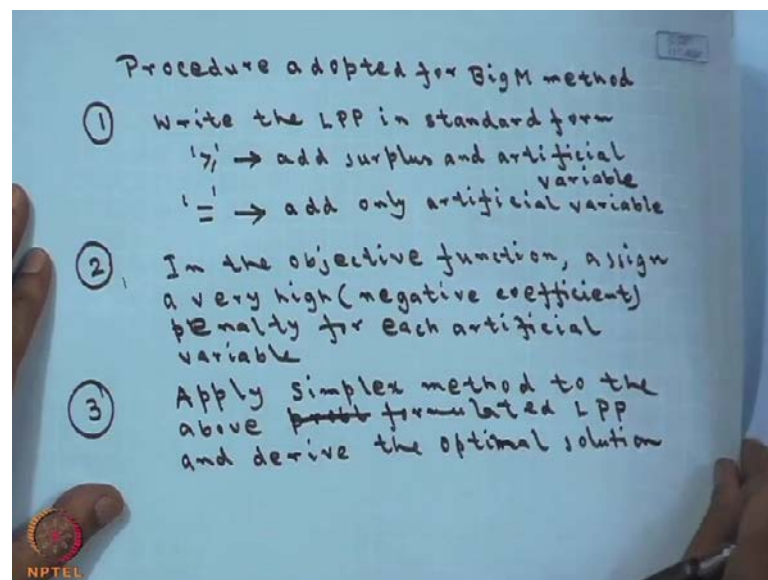 Procedure adopted for Big M method
① Write the LPP in standard form
'≥' → add surplus and artificial
variable
'=' → add only artificial variable
② In the objective function, assign
a very high (negative coefficient)
penalty for each artificial
variable
③ Apply simplex method to the
above formulated LPP
and derive the optimal solution
NPTEL